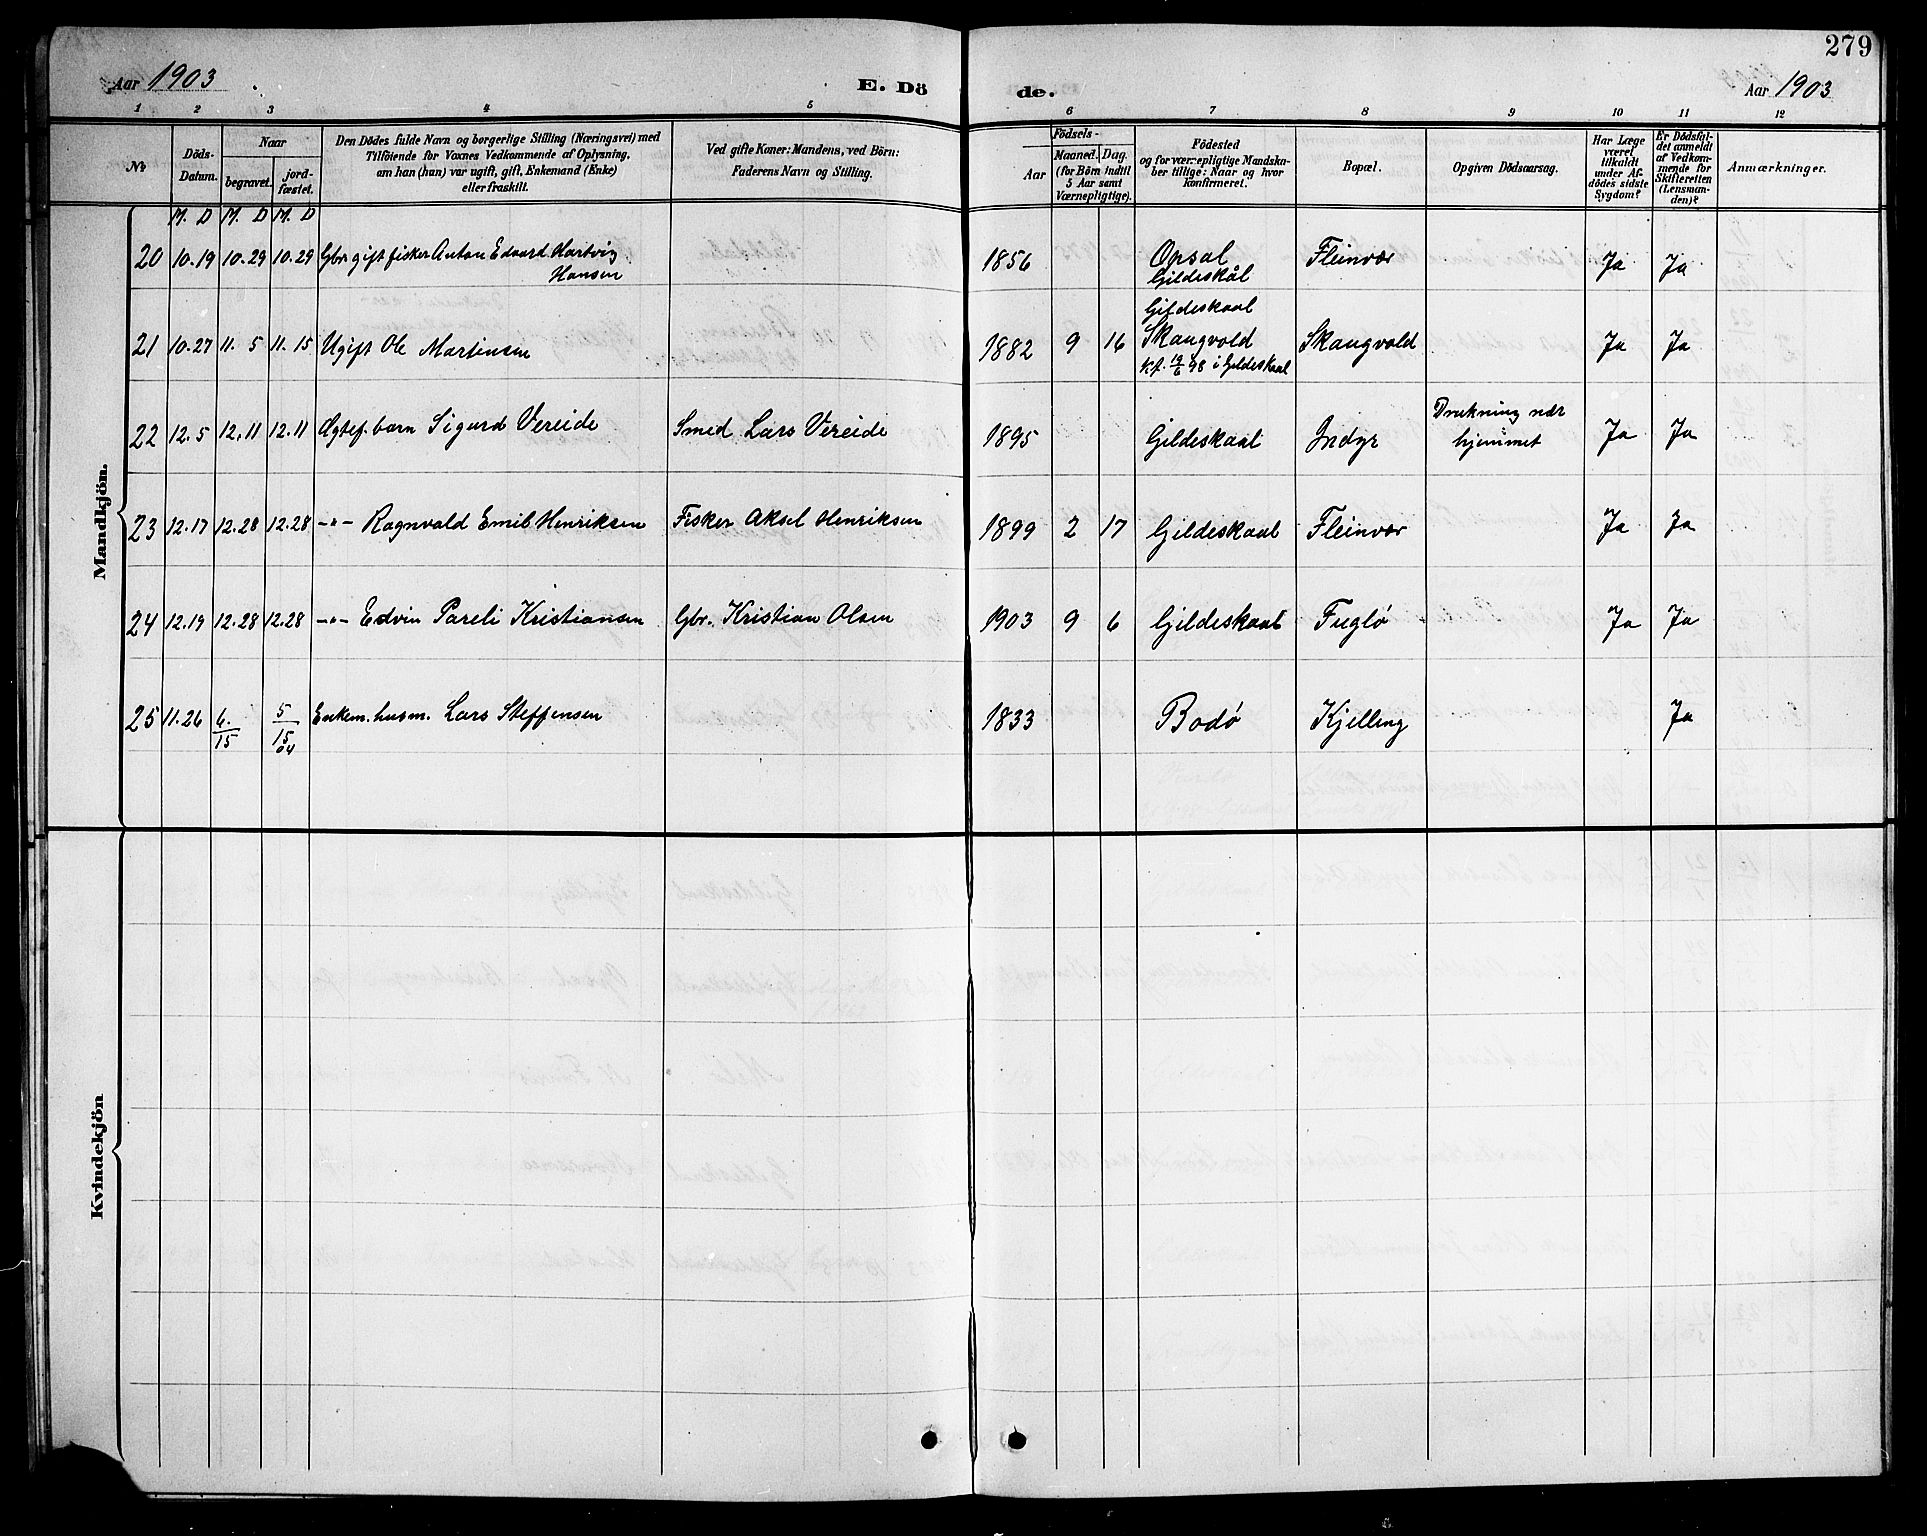 279
Aar 1903
E. Dö
de.
Aar 1903
1 2 3 4 5 6 7 8 9 10 11 12
No
Döds-
Datum.
Naar
begravet.
jord-
fæstet.
Den Dödes fulde Navn og borgerlige Stilling (Næringsvei) med
Tilföiende for Voxnes Vedkommende af Oplysning,
om han (hun) var ugift, gift, Enkemand (Enke)
eller fraskilt.
Ved gifte Koner: Mandens, ved Börn:
Faderens Navn og Stilling.
Födsels-
Aar
Maaned.
Dag
(for Börn indtil
5 Aar samt
Værnepligtige).
Födested
og for værnepligtige Mandska-
ber tillige: Naar og hvor
konfirmeret.
Bopæl.
Opgiven Dödsaarsag.
Har Læge
været
tilkaldt
under Af-
dödes sidste
Sygdom?
Er Dödsfal-
det anmeldt
af Vedkom-
mende for
Skifteretten
(Lensman-
den)?
Anmærkninger.
M. D M. D M. D
Mandkjön.
20 10.19 10.29 10.29 Gbr gift fisker Anton Edvard Hartvig
Hansen
1856 Opsal
Gildeskål
Fleinvær Ja Ja
21 10.27 11. 5 11. 15 Ugift Ole Martinsen
1882 9 16
Gildeskaal
Skaugvold
Kf. 19/6 98 i Gildeskaal
Skaugvold Ja Ja
22 12. 5 12. 11 12. 11 Ægtef. barn Sigurd Vereide Smed Lars Vereide
1895 Gildeskaal Indyr
Drukning nær
hjemmet
Ja Ja
23 12.17 12.28 12.28 -"- Ragnvald Emil Henriksen Fisker Aksel Henriksen
1899 2 17 Gildeskaal Fleinvær Ja Ja
24 12.19 12.28 12.28 -"- Edvin Pareli Kristiansen Gbr. Kristian Olsen
1903 9 6 Gildeskaal Fuglø Ja Ja
25 11.26 6./15 5/15 04 Enkem. husm. Lars Steffensen
1833 Bodø Kjelling Ja
Kvindekjön